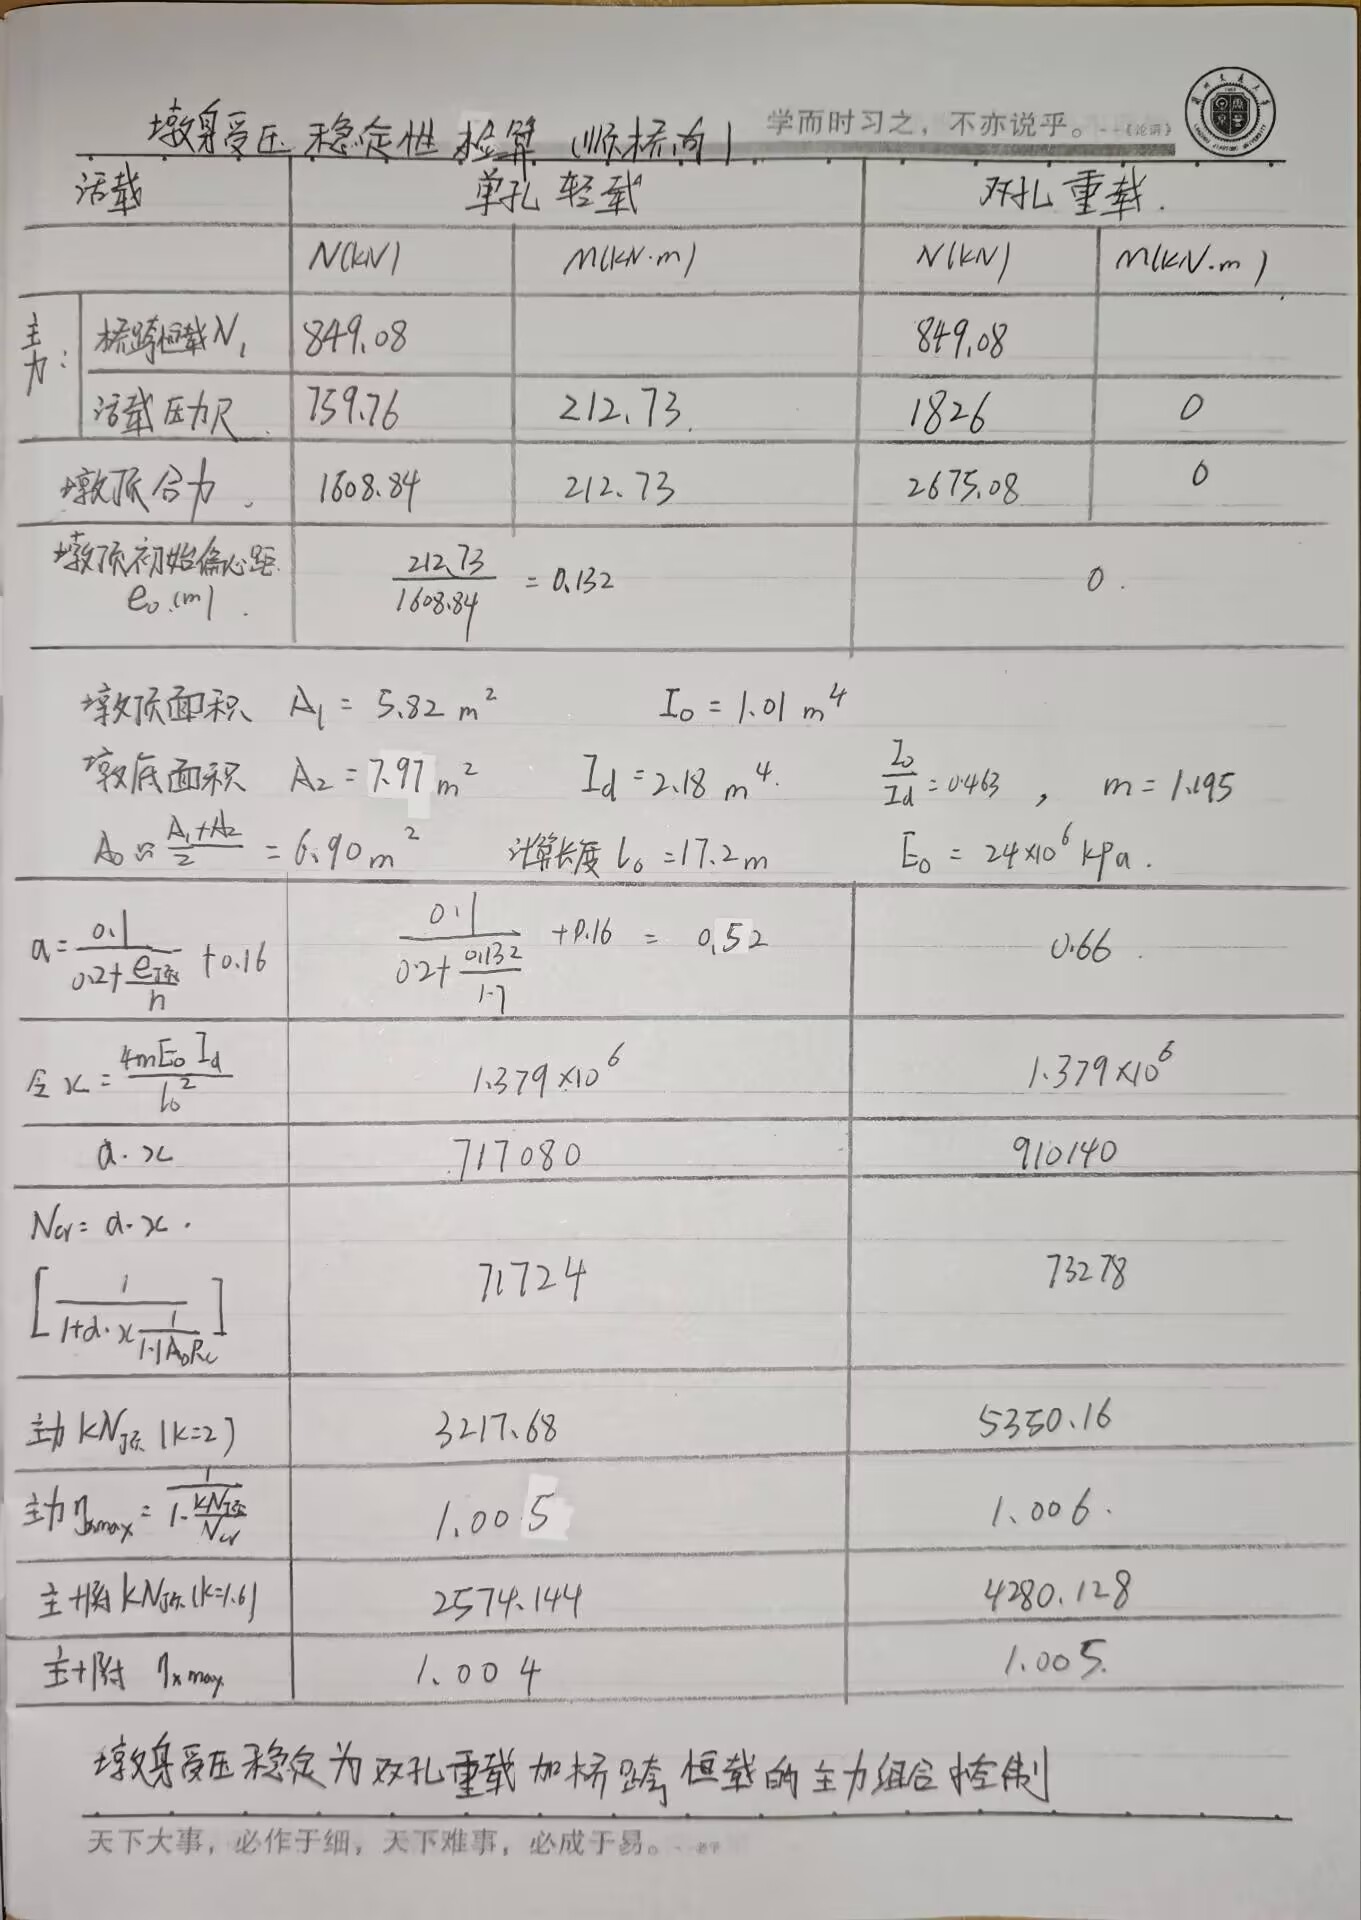 学而时习之，不亦说乎。--《论语》
墩身受压稳定性检算（顺桥向）
活载 单孔轻载 双孔重载.
N(kN) M(kN·m) N(kN) M(kN·m)
主力： 桥跨恒载N₁ 849.08 849.08
活载压力R. 759.76 212.73. 1826 0
墩顶合力. 1608.84 212.73 2675.08 0
墩顶初始偏心距 e₀.(m). 212.73/1608.84 = 0.132 0.
墩顶面积 A₁ = 5.82 m² I₀ = 1.01 m⁴
墩底面积 A₂ = 7.97 m² Id = 2.18 m⁴. I₀/Id = 0.463 , m = 1.195
A₀ = (A₁+A₂)/2 = 6.90 m² 计算长度 l₀ = 17.2m E₀ = 24×10⁶ kPa.
α = 0.1/(0.2+e顶/h) + 0.16 0.1/(0.2+0.132/1.7) + 0.16 = 0.52 0.66.
令 x = 4mE₀Id/l₀² 1.379×10⁶ 1.379×10⁶
α·x 717080 910140
Ncr = α·x·
[1/(1+α·x 1/(1.1A₀Rc))] 71724 73278
主力 kN顶 (k=2) 3217.68 5350.16
主力 ηxmax = 1/(1-kN顶/Ncr) 1.005 1.006.
主+附 kN顶 (k=1.6) 2574.144 4280.128
主+附 ηxmax 1.004 1.005.
墩身受压稳定为双孔重载加桥跨恒载的主力组合控制
天下大事，必作于细，天下难事，必成于易。